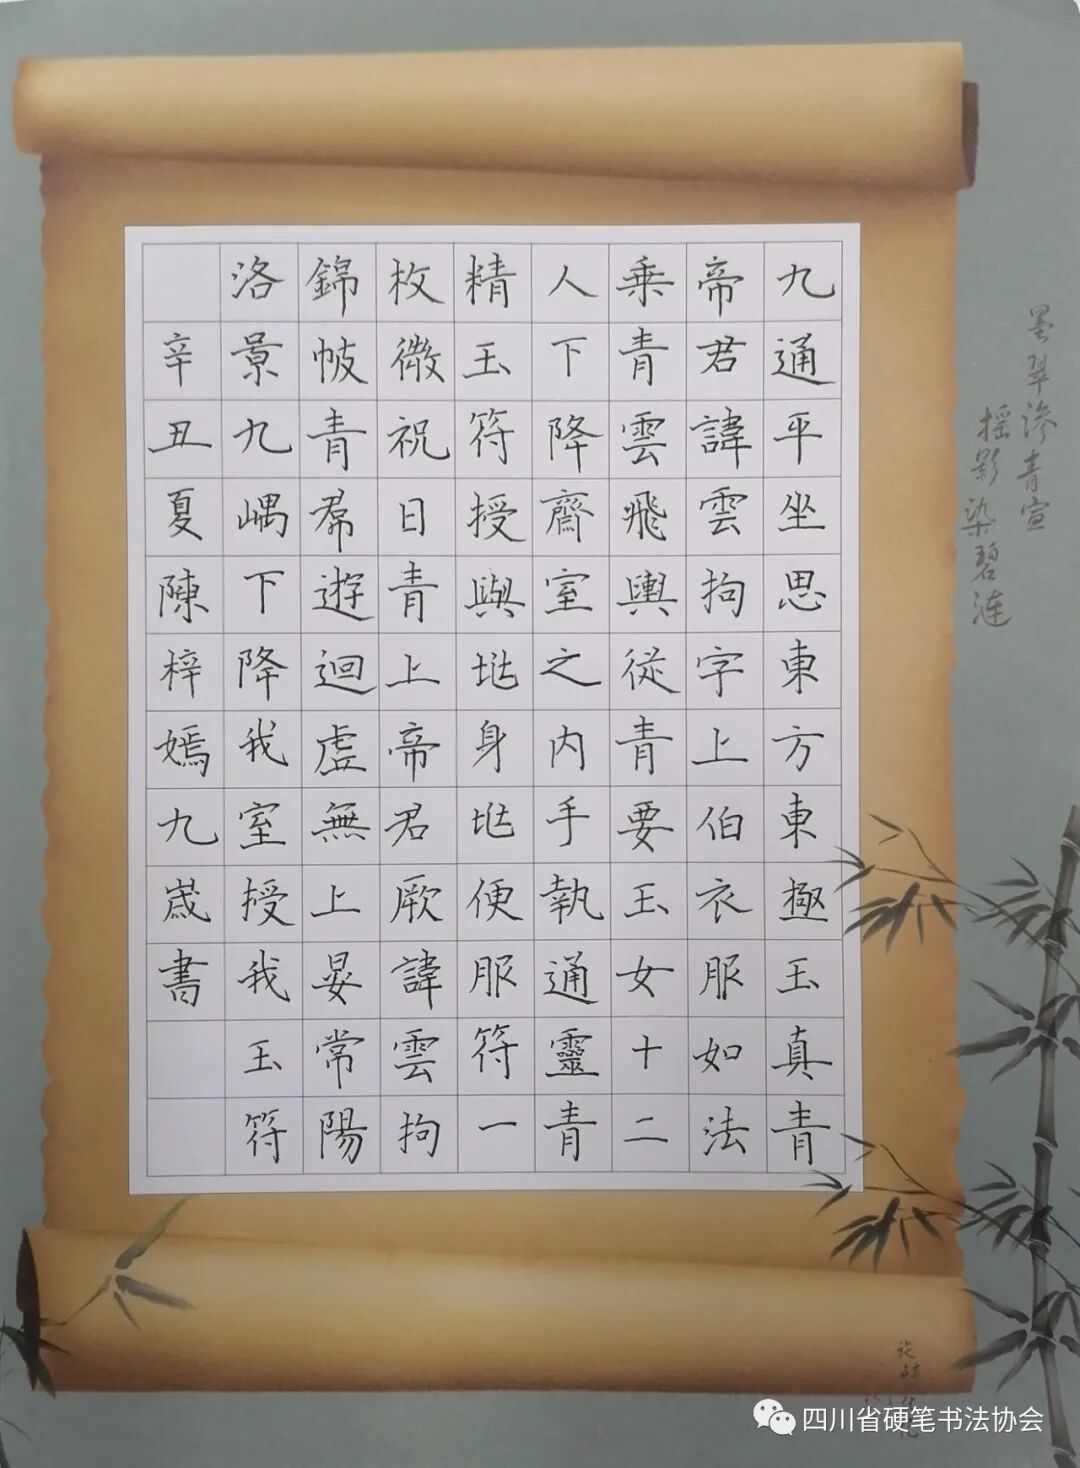 九通平坐思東方東極玉真青
帝君諱雲拘字上伯衣服如法
乗青雲飛輿從青要玉女十二
人下降齋室之内手執通靈青
精玉符授與兆身兆便服符一
枚微祝曰青上帝君厥諱雲拘
錦帔青帬遊迴虛無上晏常陽
洛景九嵎下降我室授我玉符
辛丑夏陳梓嫣九歲書
墨翠渗青宣
摇影染碧涟
四川省硬笔书法协会